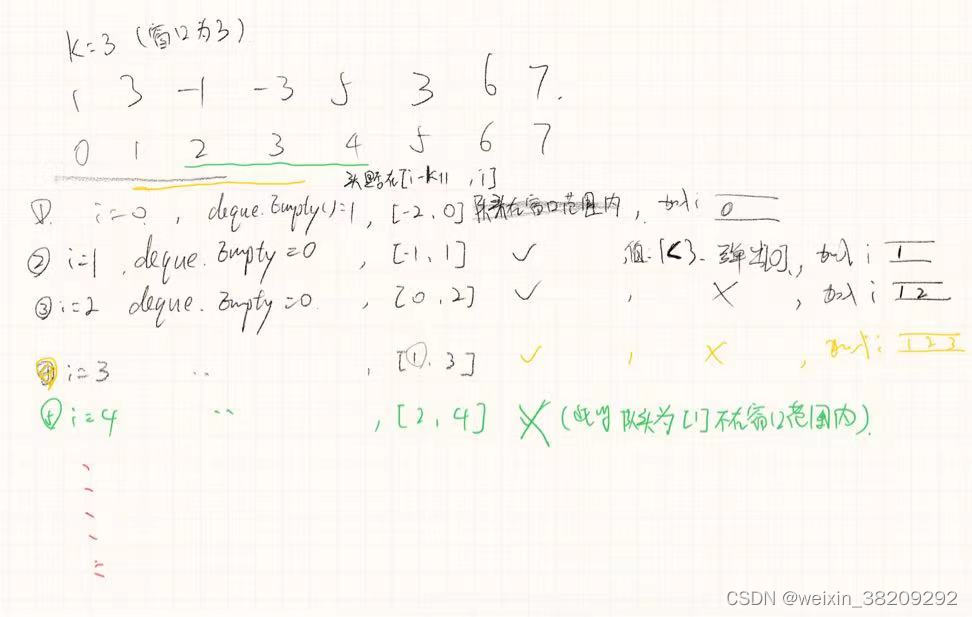 k=3 (窗口为3)
1 3 -1 -3 5 3 6 7.
0 1 2 3 4 5 6 7
头是否在[i-k+1, i]
①. i=0, deque.Empty()=1, [-2, 0] 队头在窗口范围内, 加入i 0
② i=1, deque.Empty=0, [-1, 1] ✓ 值:1<3, 弹出[0], 加入i 1
③ i=2 deque.Empty=0, [0, 2] ✓, ×, 加入i 1 2
④ i=3 .. , [1, 3] ✓, ×, 加入i: 1 2 3
⑤ i=4 .. , [2, 4] × (此时队头为[1]不在窗口范围内).
CSDN @weixin_38209292